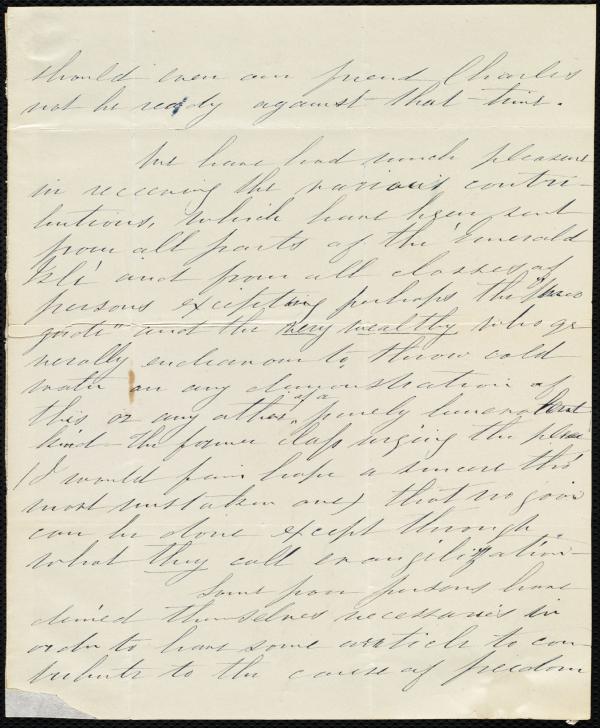 should even our friend Charles
not be ready against that time.
We have had much pleasure
in receiving the various contri-
butions, which have been sent
from all parts of the Emerald
Isle and from all classes of
persons excepting perhaps the
and the very wealthy who ge
nerally endeavour to throw cold
water on any demonstration of
this or any other, of a purely benevolent
kind - the former class urging the plea
(I would fain hope a sincere tho'
most mistaken one) that no good
can be done except through
what they call evangelization -
Some poor persons have
denied themselves necessaries in
order to have some article to con
tribute to the cause of freedom